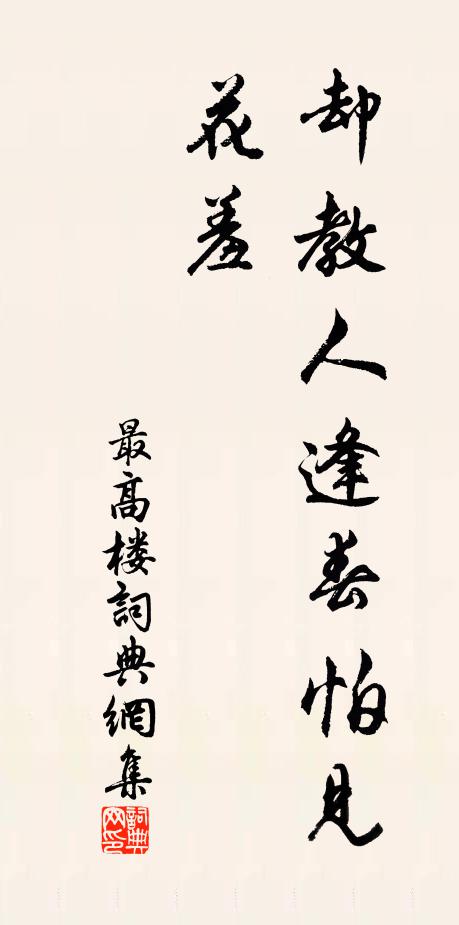 却教人逢春怕見
花羞
最高楼詞典網集
詞典
网印